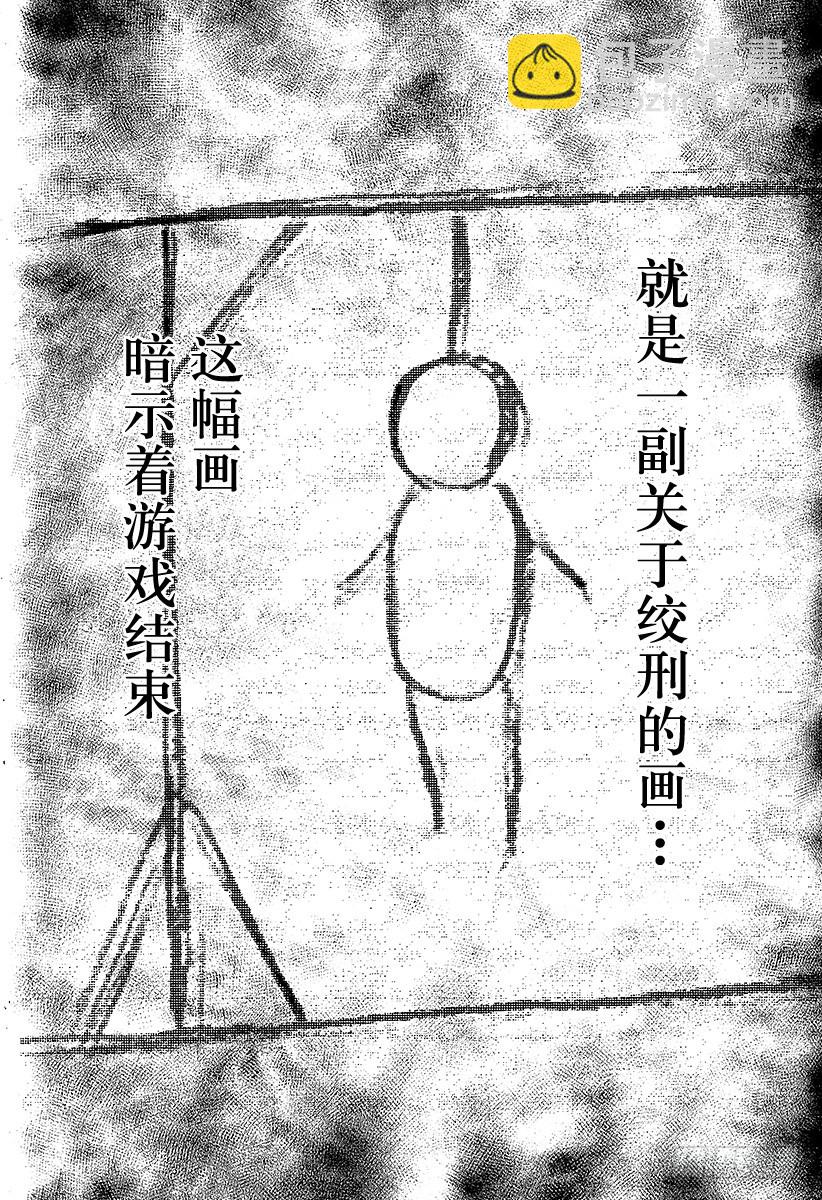 包子漫畫
baozimh.com
就是一副关于绞刑的画…
这幅画
暗示着游戏结束